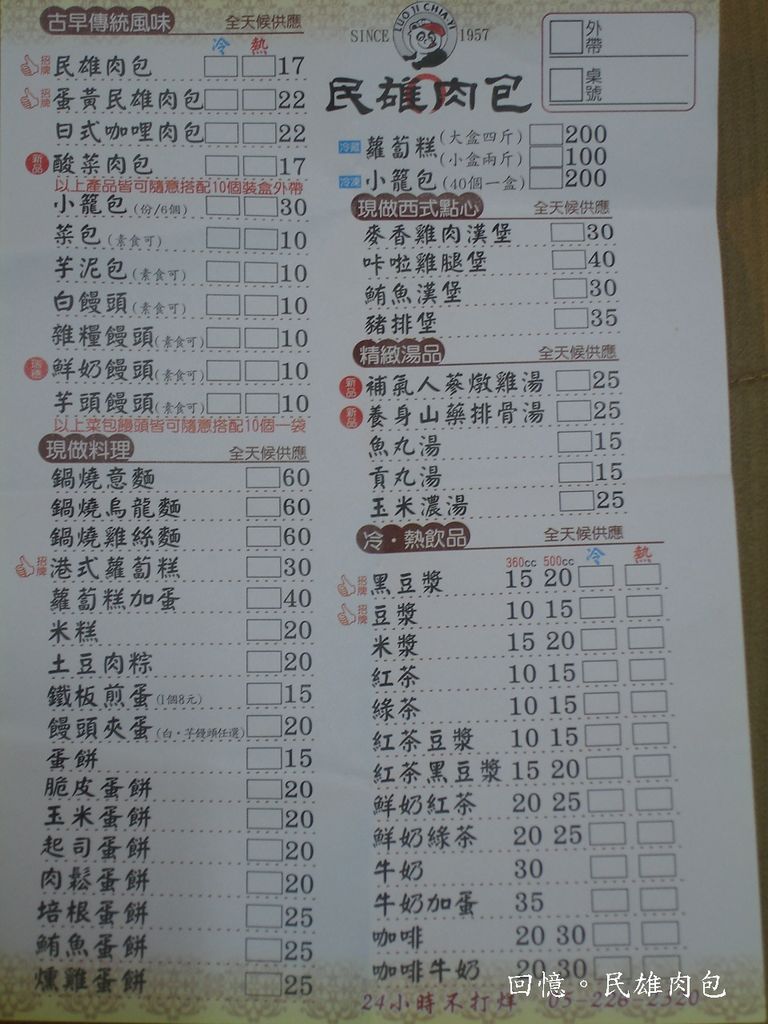 古早傳統風味 全天候供應
冷 熱
招牌 民雄肉包 17
招牌 蛋黃民雄肉包 22
日式咖哩肉包 22
新品 酸菜肉包 17
以上產品皆可隨意搭配10個裝盒外帶
小籠包(份/6個) 30
菜包(素食可) 10
芋泥包(素食可) 10
白饅頭(素食可) 10
雜糧饅頭(素食可) 10
鮮奶饅頭(素食可) 10
芋頭饅頭(素食可) 10
以上菜包饅頭皆可隨意搭配10個一袋
現做料理 全天候供應
鍋燒意麵 60
鍋燒烏龍麵 60
鍋燒雞絲麵 60
招牌 港式蘿蔔糕 30
蘿蔔糕加蛋 40
米糕 20
土豆肉粽 20
鐵板煎蛋(1個8元) 15
饅頭夾蛋(白·芋饅頭任選) 20
蛋餅 15
脆皮蛋餅 20
玉米蛋餅 20
起司蛋餅 20
肉鬆蛋餅 20
培根蛋餅 25
鮪魚蛋餅 25
燻雞蛋餅 25
LUO JI CHIA YI
SINCE 1957
民雄肉包
外帶
桌號
冷藏 蘿蔔糕(大盒四斤) 200
(小盒兩斤) 100
冷凍 小籠包(40個一盒) 200
現做西式點心 全天候供應
麥香雞肉漢堡 30
咔啦雞腿堡 40
鮪魚漢堡 30
豬排堡 35
精緻湯品 全天候供應
新品 補氣人蔘燉雞湯 25
新品 養身山藥排骨湯 25
魚丸湯 15
貢丸湯 15
玉米濃湯 25
冷·熱飲品 全天候供應
360cc 500cc 冷 熱
招牌 黑豆漿 15 20
招牌 豆漿 10 15
米漿 15 20
紅茶 10 15
綠茶 10 15
紅茶豆漿 10 15
紅茶黑豆漿 15 20
鮮奶紅茶 20 25
鮮奶綠茶 20 25
牛奶 30
牛奶加蛋 35
咖啡 20 30
咖啡牛奶 20 30
24小時不打烊
回憶。民雄肉包